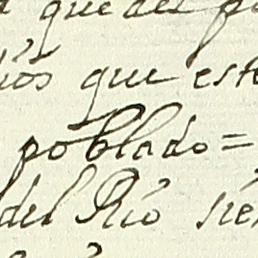 que del
que est
poblado=
del Rio sie